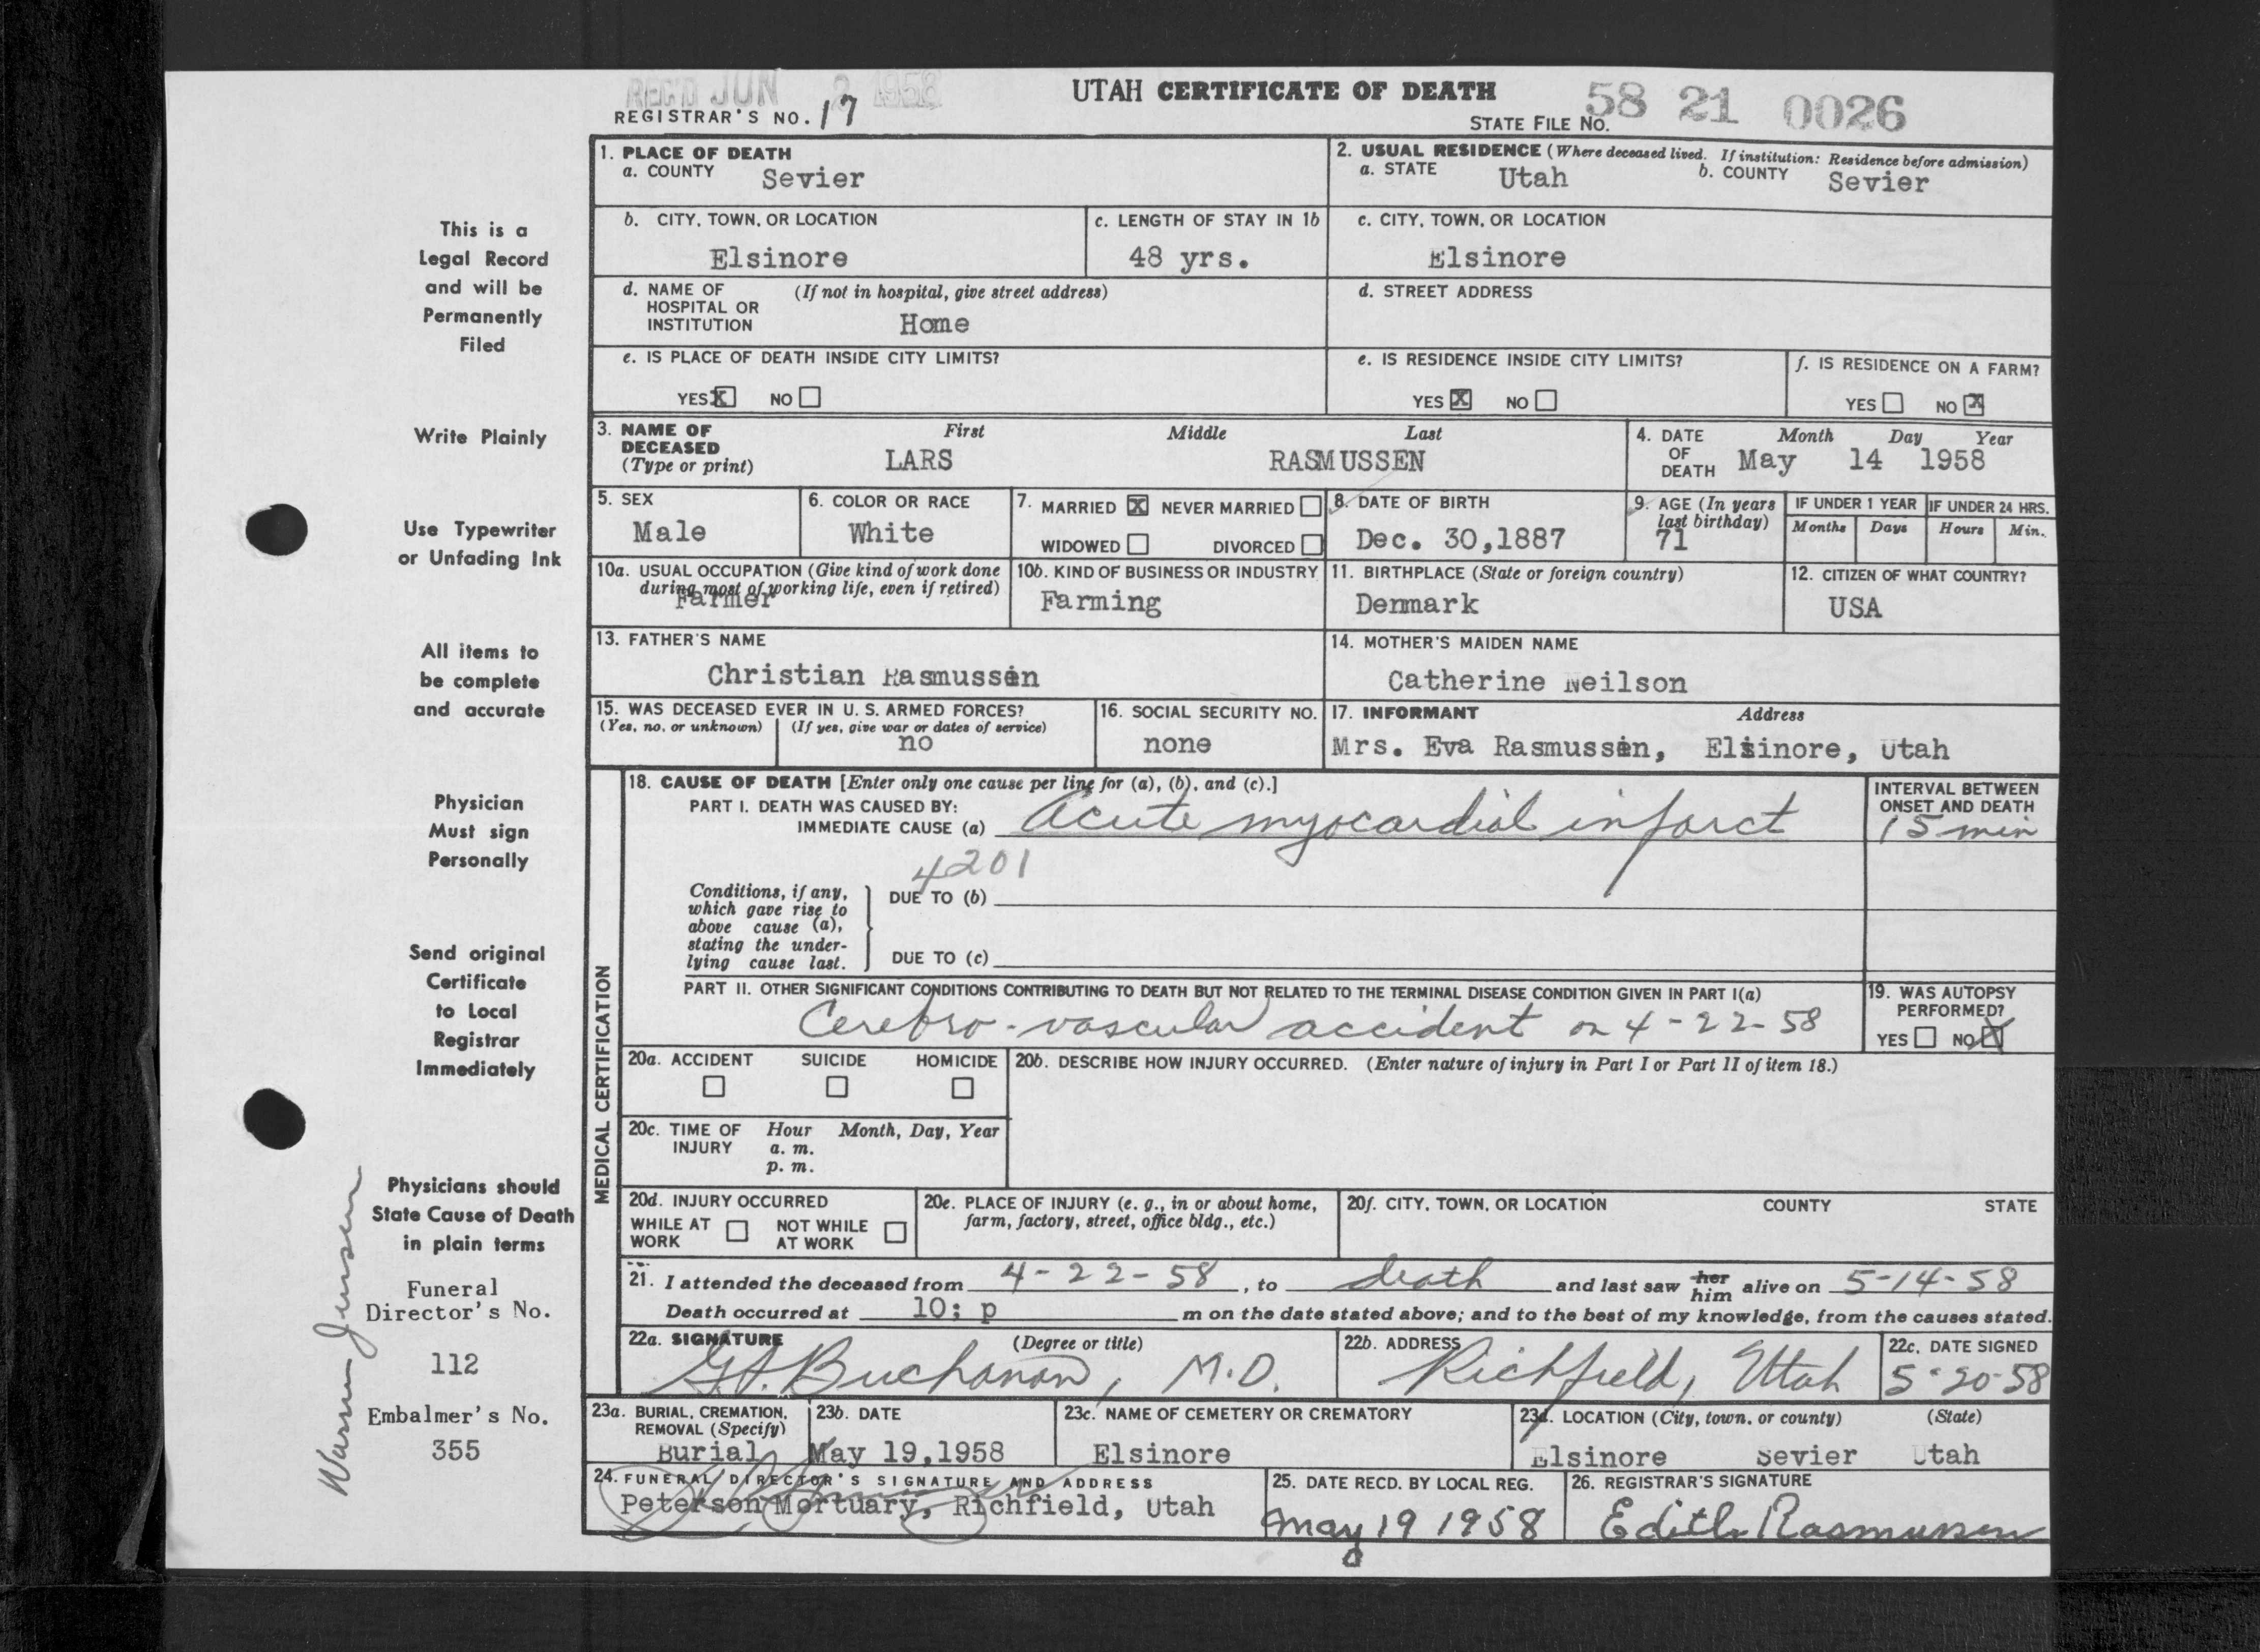 REC'D JUN 2 1958
UTAH CERTIFICATE OF DEATH
REGISTRAR'S NO. 17
STATE FILE NO. 58 21 0026
1. PLACE OF DEATH
a. COUNTY Sevier
2. USUAL RESIDENCE (Where deceased lived. If institution: Residence before admission)
a. STATE Utah b. COUNTY Sevier
b. CITY, TOWN, OR LOCATION
Elsinore
c. LENGTH OF STAY IN 1b
48 yrs.
c. CITY, TOWN, OR LOCATION
Elsinore
d. NAME OF HOSPITAL OR INSTITUTION (If not in hospital, give street address)
Home
d. STREET ADDRESS
e. IS PLACE OF DEATH INSIDE CITY LIMITS?
YES X NO
e. IS RESIDENCE INSIDE CITY LIMITS?
YES X NO
f. IS RESIDENCE ON A FARM?
YES NO X
3. NAME OF DECEASED (Type or print)
First Middle Last
LARS RASMUSSEN
4. DATE OF DEATH Month Day Year
May 14 1958
5. SEX
Male
6. COLOR OR RACE
White
7. MARRIED X NEVER MARRIED
WIDOWED DIVORCED
8. DATE OF BIRTH
Dec. 30,1887
9. AGE (In years last birthday)
71
IF UNDER 1 YEAR IF UNDER 24 HRS.
Months Days Hours Min.
10a. USUAL OCCUPATION (Give kind of work done during most of working life, even if retired)
Farmer
10b. KIND OF BUSINESS OR INDUSTRY
Farming
11. BIRTHPLACE (State or foreign country)
Denmark
12. CITIZEN OF WHAT COUNTRY?
USA
13. FATHER'S NAME
Christian Rasmussen
14. MOTHER'S MAIDEN NAME
Catherine Neilson
15. WAS DECEASED EVER IN U. S. ARMED FORCES?
(Yes, no, or unknown) (If yes, give war or dates of service)
no
16. SOCIAL SECURITY NO.
none
17. INFORMANT Address
Mrs. Eva Rasmussen, Elsinore, Utah
MEDICAL CERTIFICATION
18. CAUSE OF DEATH [Enter only one cause per line for (a), (b), and (c).]
PART I. DEATH WAS CAUSED BY:
IMMEDIATE CAUSE (a) Acute myocardial infarct
INTERVAL BETWEEN ONSET AND DEATH
15 min
4201
Conditions, if any, which gave rise to above cause (a), stating the underlying cause last.
DUE TO (b)
DUE TO (c)
PART II. OTHER SIGNIFICANT CONDITIONS CONTRIBUTING TO DEATH BUT NOT RELATED TO THE TERMINAL DISEASE CONDITION GIVEN IN PART I(a)
Cerebro-vascular accident on 4-22-58
19. WAS AUTOPSY PERFORMED?
YES NO X
20a. ACCIDENT SUICIDE HOMICIDE
20b. DESCRIBE HOW INJURY OCCURRED. (Enter nature of injury in Part I or Part II of item 18.)
20c. TIME OF INJURY Hour Month, Day, Year
a. m.
p. m.
20d. INJURY OCCURRED
WHILE AT WORK NOT WHILE AT WORK
20e. PLACE OF INJURY (e. g., in or about home, farm, factory, street, office bldg., etc.)
20f. CITY, TOWN, OR LOCATION COUNTY STATE
21. I attended the deceased from 4-22-58, to death and last saw her him alive on 5-14-58
Death occurred at 10; p m on the date stated above; and to the best of my knowledge, from the causes stated.
22a. SIGNATURE (Degree or title)
Buchanan, M.D.
22b. ADDRESS
Richfield, Utah
22c. DATE SIGNED
5-20-58
23a. BURIAL, CREMATION, REMOVAL (Specify)
Burial
23b. DATE
May 19,1958
23c. NAME OF CEMETERY OR CREMATORY
Elsinore
23d. LOCATION (City, town, or county) (State)
Elsinore Sevier Utah
24. FUNERAL DIRECTOR'S SIGNATURE AND ADDRESS
Peterson Mortuary, Richfield, Utah
25. DATE RECD. BY LOCAL REG.
May 19 1958
26. REGISTRAR'S SIGNATURE
Edith Rasmussen
This is a
Legal Record
and will be
Permanently
Filed
Write Plainly
Use Typewriter
or Unfading Ink
All items to
be complete
and accurate
Physician
Must sign
Personally
Send original
Certificate
to Local
Registrar
Immediately
Physicians should
State Cause of Death
in plain terms
Funeral
Director's No.
112
Embalmer's No.
355
Warren Jensen